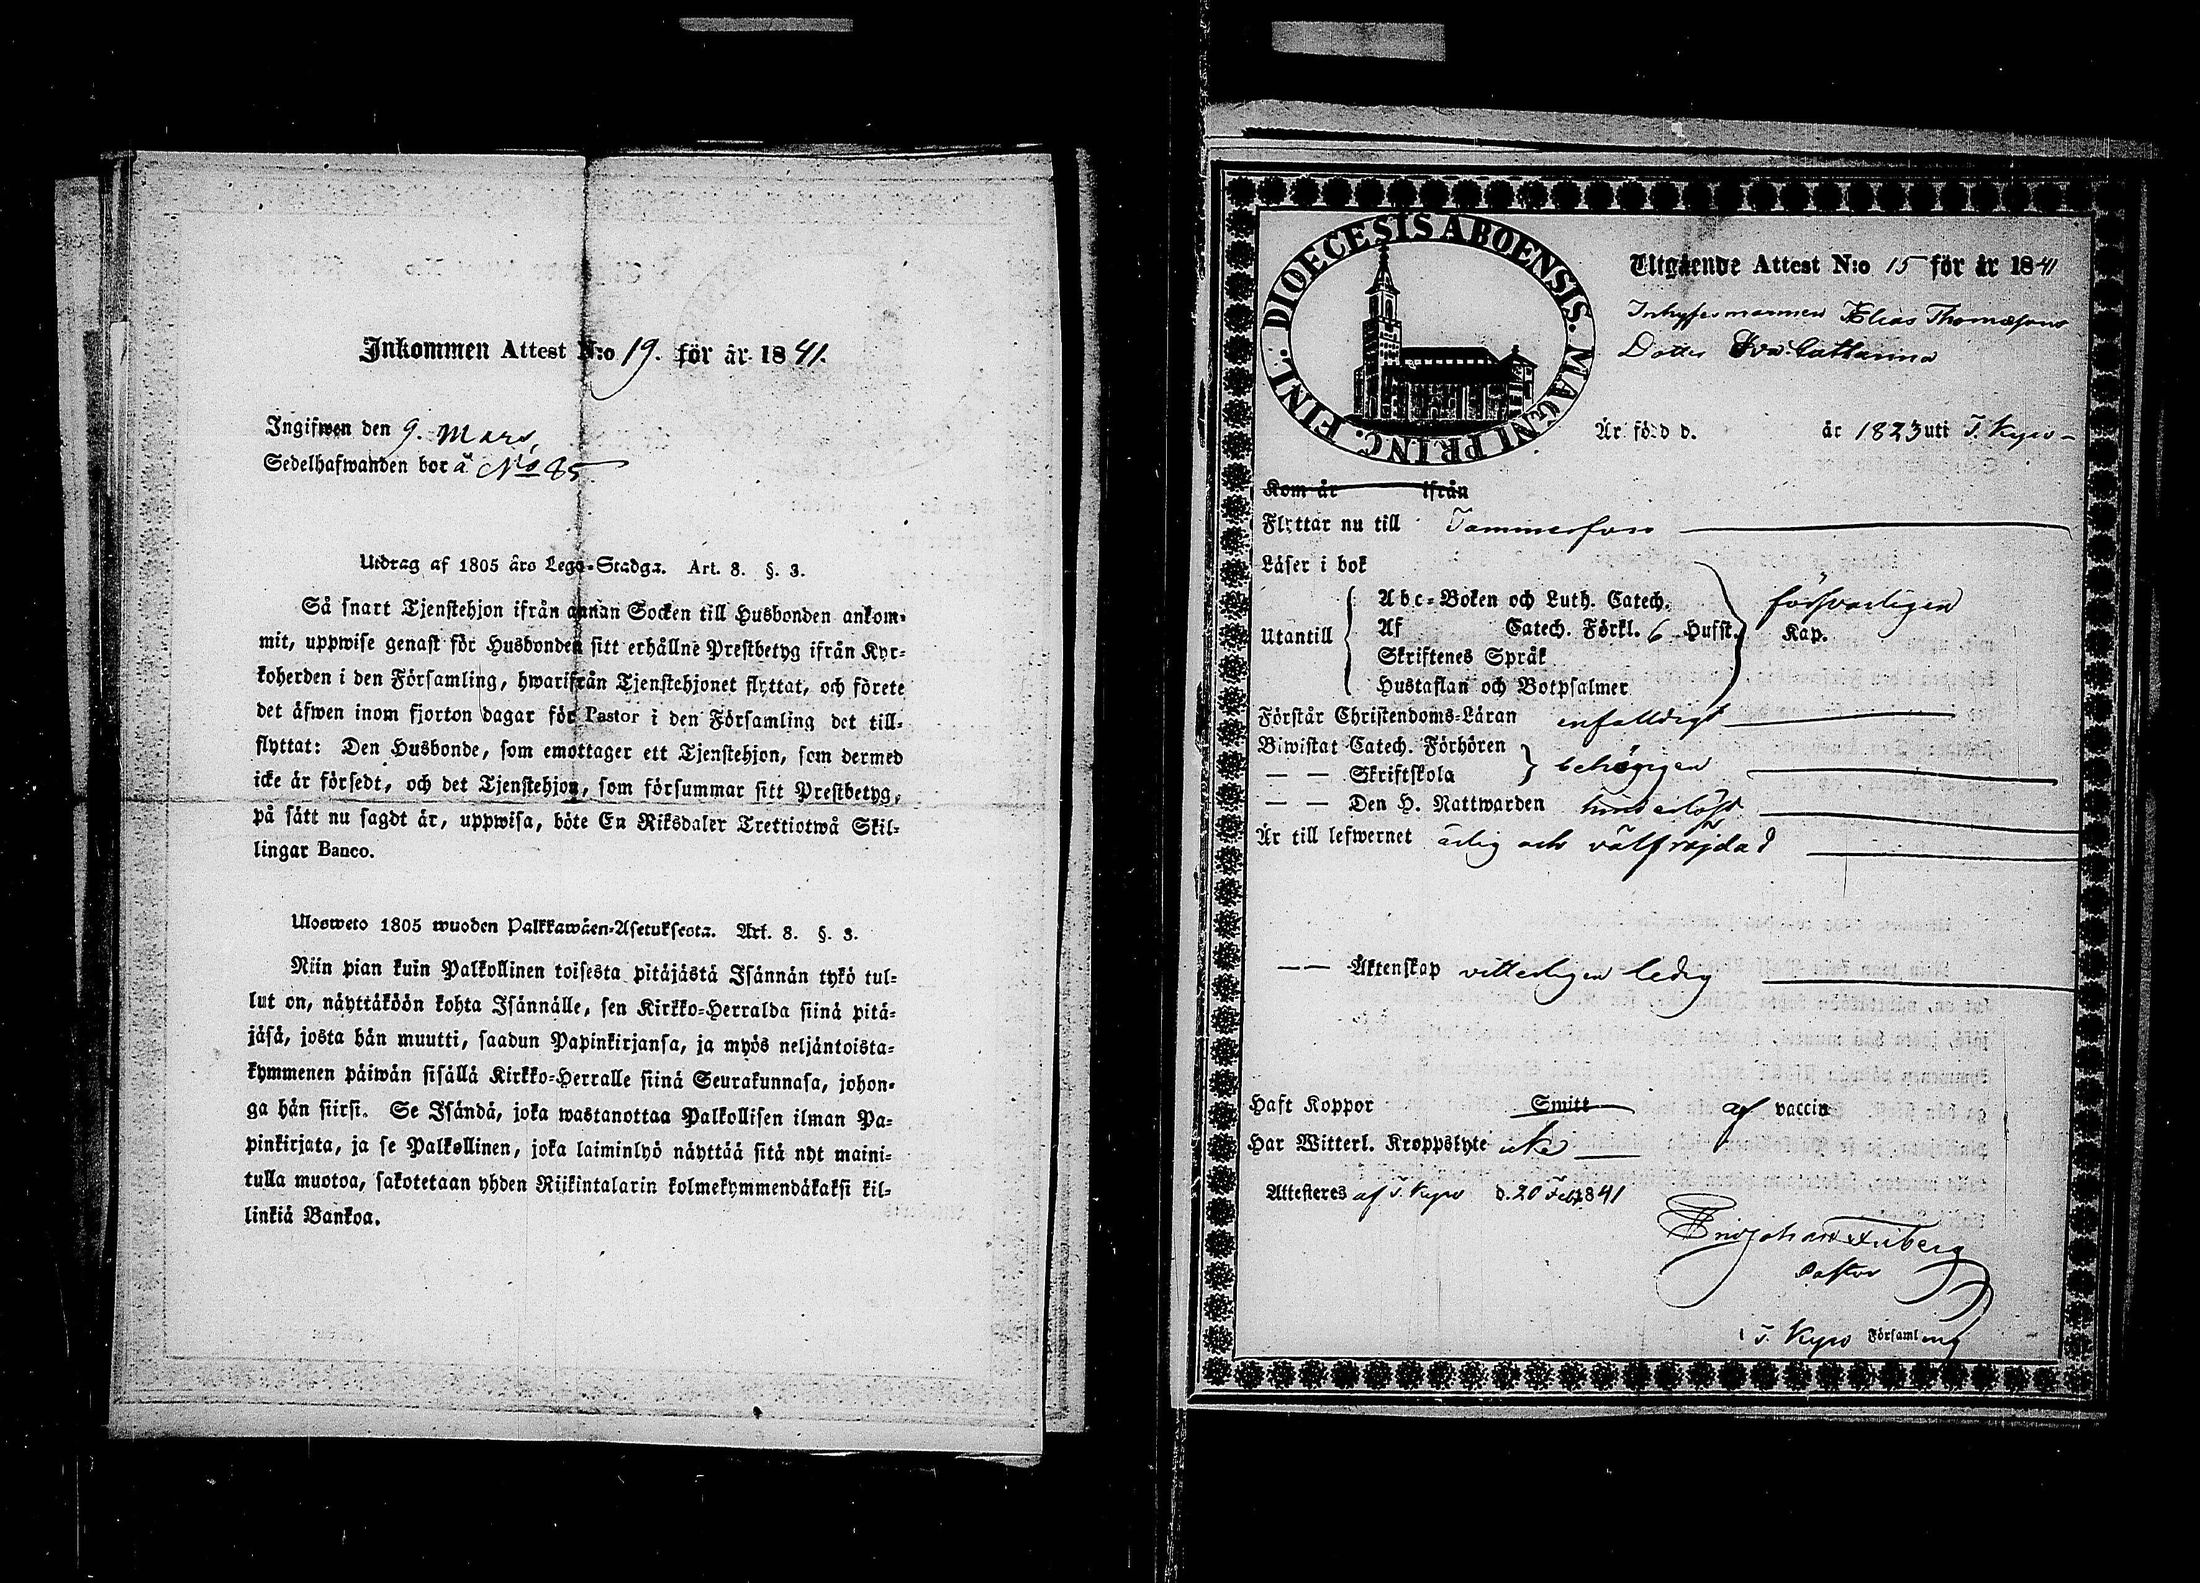 Inkommen Attest N:o 19. för år 1841.
Ingifwen den 9. Mars.
Sedelhafwanden bor å No 85
Utdrag af 1805 års Lego-Stadga. Art. 8. §. 3.
Så snart Tjenstehjon ifrån annan Socken till Husbonden ankom-
mit, uppwise genast för Husbonden sitt erhållne Prestbetyg ifrån Kyr-
koherden i den Församling, hwarifrån Tjenstehjonet flyttat, och förete
det äfwen inom fjorton dagar för Pastor i den Församling det till-
flyttat: Den Husbonde, som emottager ett Tjenstehjon, som dermed
icke är försedt, och det Tjenstehjon, som försummar sitt Prestbetyg,
på sätt nu sagdt är, uppwisa, böte En Riksdaler Trettiotwå Skil-
lingar Banco.
Ulosweto 1805 wuoden Palkkawäen-Asetuksesta. Art. 8. §. 3.
Niin pian kuin Palkollinen toisesta pitäjästä Isännän tykö tul-
lut on, näyttäköön kohta Isännälle, sen Kirkko-Herralda siinä pitä-
jäsä, josta hän muutti, saadun Papinkirjansa, ja myös neljäntoista-
kymmenen päiwän sisällä Kirkko-Herralle siinä Seurakunnasa, johon-
ga hän siirsi. Se Isändä, joka wastanottaa Palkollisen ilman Pa-
pinkirjata, ja se Palkollinen, joka laiminlyö näyttää sitä nyt maini-
tulla muotoa, sakotetaan yhden Riikintalarin kolmekymmendäkaksi kil-
linkiä Bankoa.
DIOECESIS ABOENSIS. MAGNI PRINC. FINL.
Utgående Attest N:o 15 för år 1841
Inhysesmannen Elias Thomassons
Dotter Eva Catharina
Är född d. år 1823 uti T. Kyro
Kom år ifrån
Flyttar nu till Tammerfors
Läser i bok
Abc-Boken och Luth. Catech. försvarligen
Utantill Af Catech. Förkl. 6 Hufst. Kap.
Skriftenes Språk
Hustaflan och Botpsalmer
Förstår Christendoms-Läran enfalldigt
Biwistat Catech. Förhören
— — Skriftskola behörigen
— — Den H. Nattwarden hinderlöst
Är till lefwernet ärlig och välfräjdad
—— Äktenskap vitterligen ledig
Haft Koppor Smitt af vaccin
Har Witterl. Kroppslyte icke
Attesteres af T. Kyro d. 20 Feb. 1841
Pastor
i T. Kyro Församling